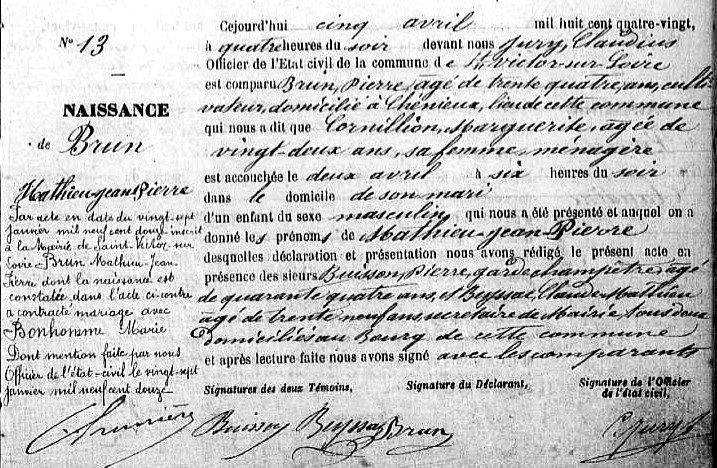 N° 13
NAISSANCE
de Brun
Mathieu-jean Pierre
Par acte en date du vingt-sept
janvier mil neuf cent douze inscrit
à la Mairie de Saint-Victor-sur
Loire-Brun Mathieu-Jean
Pierre dont la naissance est
constatée dans l'acte ci-contre
a contracté mariage avec
Bonhomme Marie
Dont mention faite par nous
Officier de l'état-civil le vingt-sept
janvier mil neuf cent douze
Cejourd'hui cinq avril mil huit cent quatre-vingt,
à quatre heures du soir devant nous Jury, Claudius
Officier de l'Etat civil de la commune de St victor-sur-Loire
est comparu Brun, Pierre, agé de trente quatre, ans, culti-
vateur, domicilié à Chénieux, lieu de cette commune
qui nous a dit que Cornillion, Marguerite, agée de
vingt deux ans, sa femme, ménagère
est accouchée le deux avril à six heures du soir
dans le domicile de son mari
d'un enfant du sexe masculin, qui nous a été présenté et auquel on a
donné les prénoms de Mathieu-jean-Pierre
desquelles déclaration et présentation nous avons rédigé le présent acte en
présence des sieurs Buisson, Pierre, garde champêtre, agé
de quarante quatre ans, et Beyssac, Claude Mathieu
agé de trente neuf ans, secretaire de Mairie, tous deux
Domiciliés au Bourg de cette commune
et après lecture faite nous avons signé avec les comparants
Signatures des deux Témoins, Signature du Déclarant, Signature de l'Officier
de l'état civil,
Buisson Beyssac Brun C. Jury